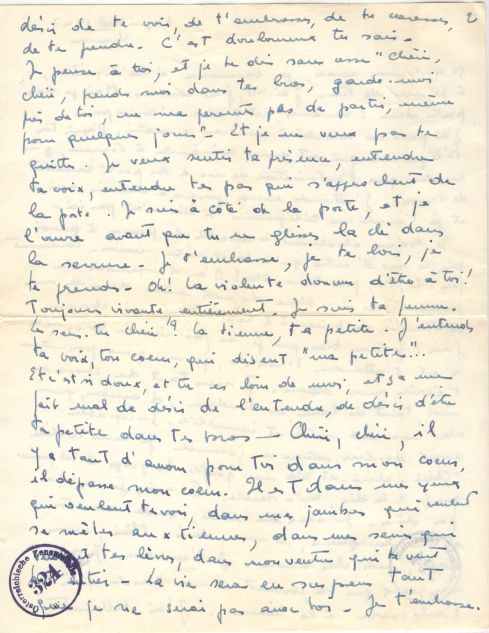 2
désir de te voir, de t'embrasser, de te caresser,
de te prendre. C'est douloureux tu sais.
Je pense à toi, et je te dis sans cesse "Chéri,
chéri, prends moi dans tes bras, garde-moi
près de toi, ne me permets pas de partir, même
pour quelques jours". Et je ne veux pas te
quitter. Je veux sentir ta présence, entendre
ta voix, entendre tes pas qui s'approchent de
la porte. Je suis à côté de la porte, et je
l'ouvre avant que tu ne glisses la clé dans
la serrure. Je t'embrasse, je te bois, je
te prends. Oh! La violente douceur d'être à toi!
Toujours vivante entièrement. Je suis ta femme.
Le sens-tu chéri? la tienne, ta petite. J'entends
ta voix, ton coeur, qui disent "ma petite"...
Et c'est si doux, et tu es loin de moi, et ça me
fait mal de désir de l'entendre, de désir d'être
ta petite dans tes bras — Chéri, chéri, il
y a tant d'amour pour toi dans mon coeur,
il dépasse mon coeur. Il est dans mes yeux
qui veulent te voir, dans mes jambes qui veulent
se mêler aux tiennes, dans mes seins qui
tes lèvres, dans mon ventre qui te veut
La vie sera en suspens tant
que je ne serai pas avec toi. Je t'embrasse.
Österreichische Zensurstelle
324